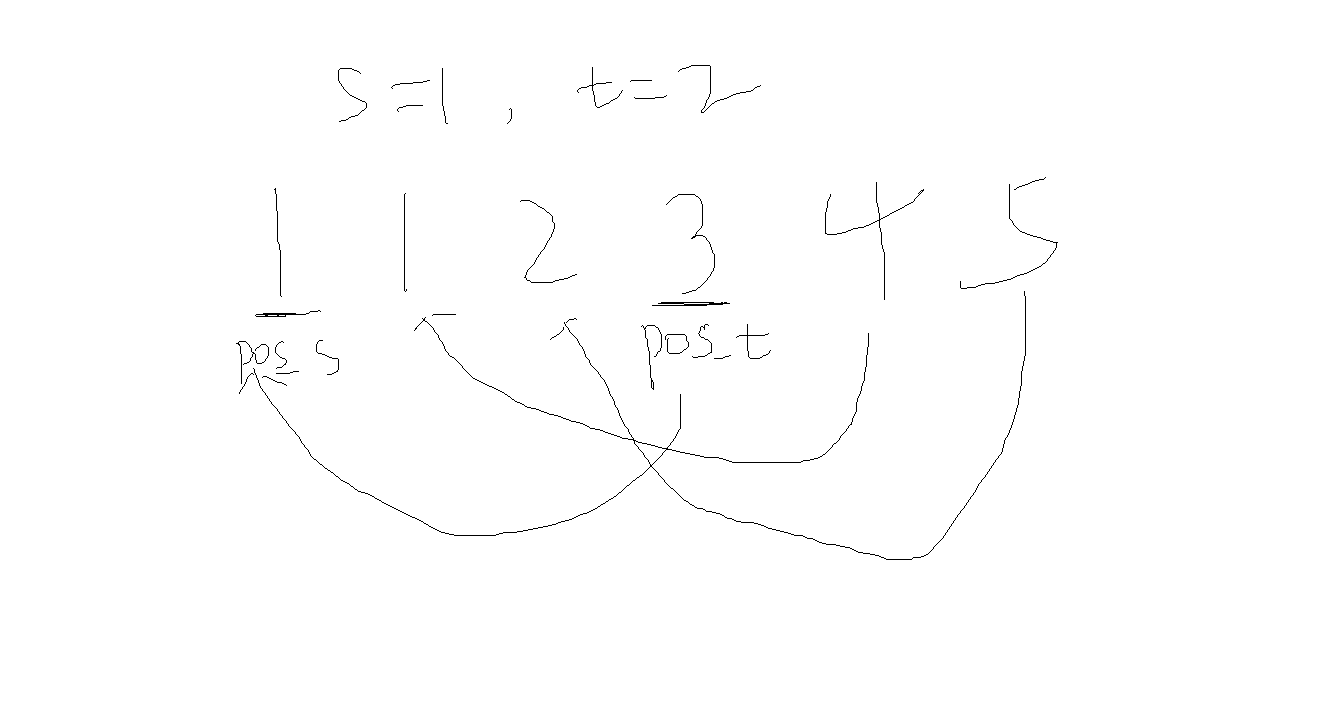 s=1, t=2
1 1 2 3 4 5
pos_s pos_t